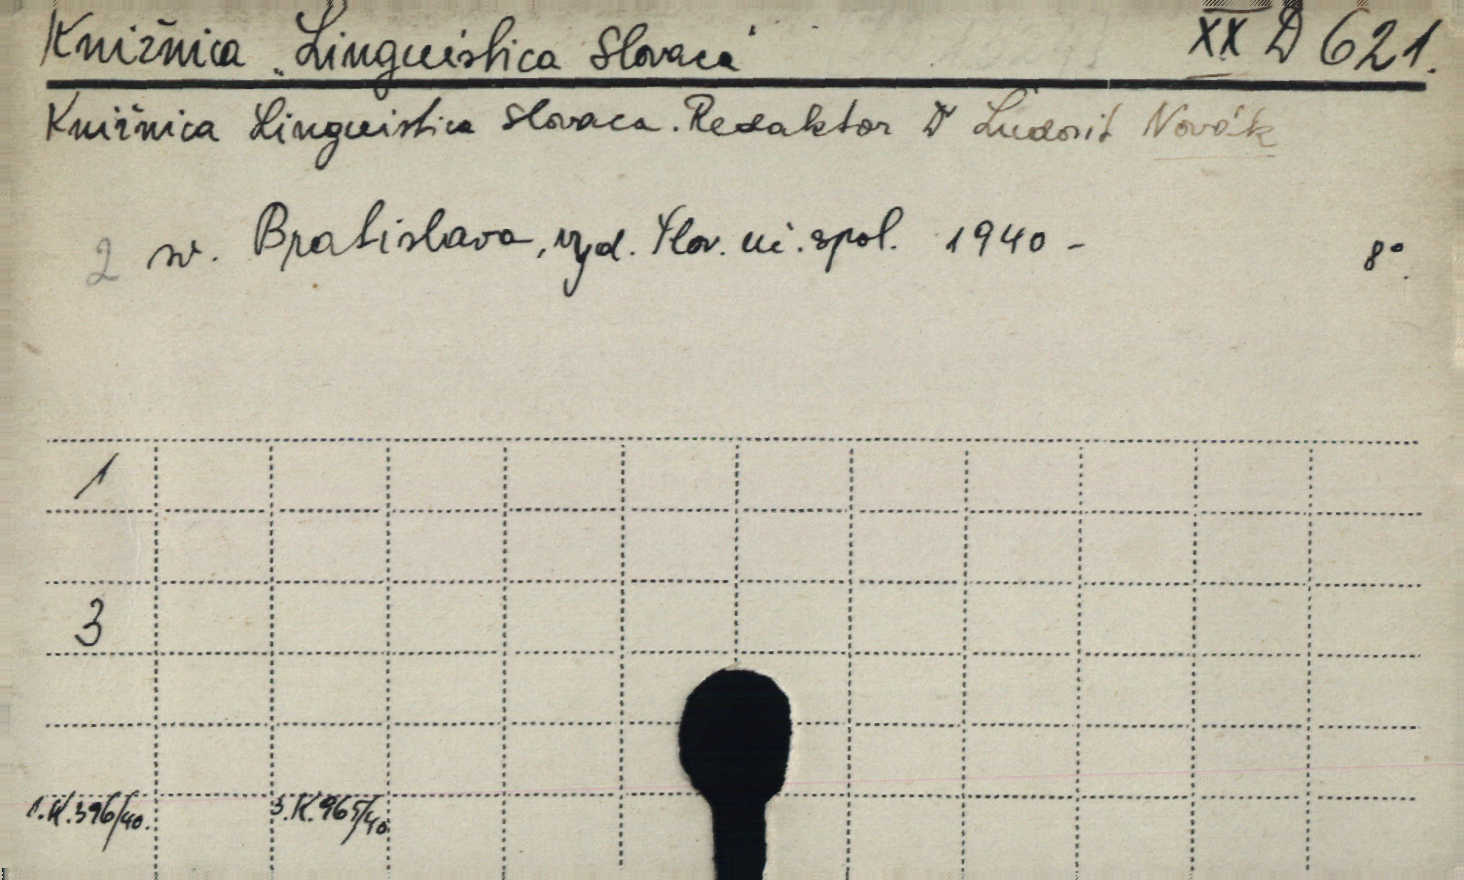 Knižnica „Linguistica Slovaca" XX D 621.
Knižnica Linguistica Slovaca. Redaktor Dr Ľudovít Novák
2 sv. Bratislava, vyd. Slov. uč. spol. 1940 - 8°.
1
3
1.K.396/40. 3.K.965/40